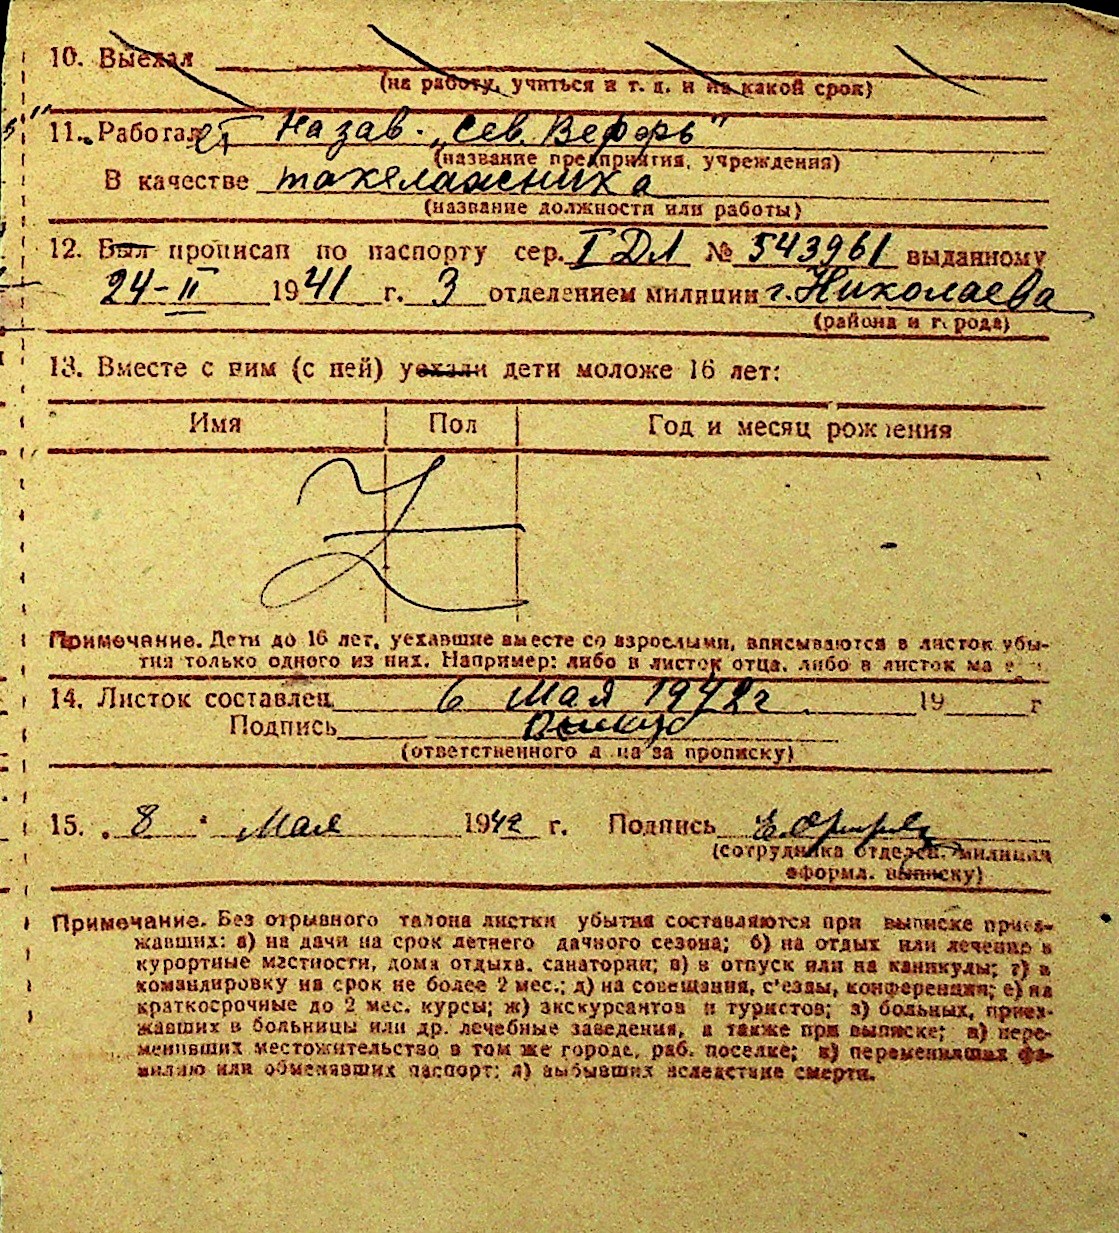 10. Выехал
(на работу, учиться и т. д. и на какой срок)
11. Работает На зав. „Сев. Верфь"
(название предприятия, учреждения)
В качестве такелажника
(название должности или работы)
12. Был прописан по паспорту сер. I ДЛ № 543961 выданному
24-II 1941 г. 3 отделением милиции г. Николаева
(района и города)
13. Вместе с ним (с ней) уехали дети моложе 16 лет:
Имя Пол Год и месяц рождения
Примечание. Дети до 16 лет, уехавшие вместе со взрослыми, вписываются в листок убы-
тия только одного из них. Например: либо в листок отца, либо в листок
14. Листок составлен 6 мая 1942г 19 г
Подпись
(ответственного лица за прописку)
15. 8 мая 1942 г. Подпись
(сотрудника отделен. милиции
оформл. выписку)
Примечание. Без отрывного талона листки убытия составляются при выписке приез-
жавших: а) на дачи на срок летнего дачного сезона; б) на отдых или лечение в
курортные местности, дома отдыха, санатории; в) в отпуск или на каникулы; г) в
командировку на срок не более 2 мес.; д) на совещания, с'езды, конференции; е) на
краткосрочные до 2 мес. курсы; ж) экскурсантов и туристов; з) больных, приез-
жавших в больницы или др. лечебные заведения, а также при выписке; и) пере-
менивших местожительство в том же городе, раб. поселке; к) переменивших фа-
милию или обменявших паспорт; л) выбывших вследствие смерти.